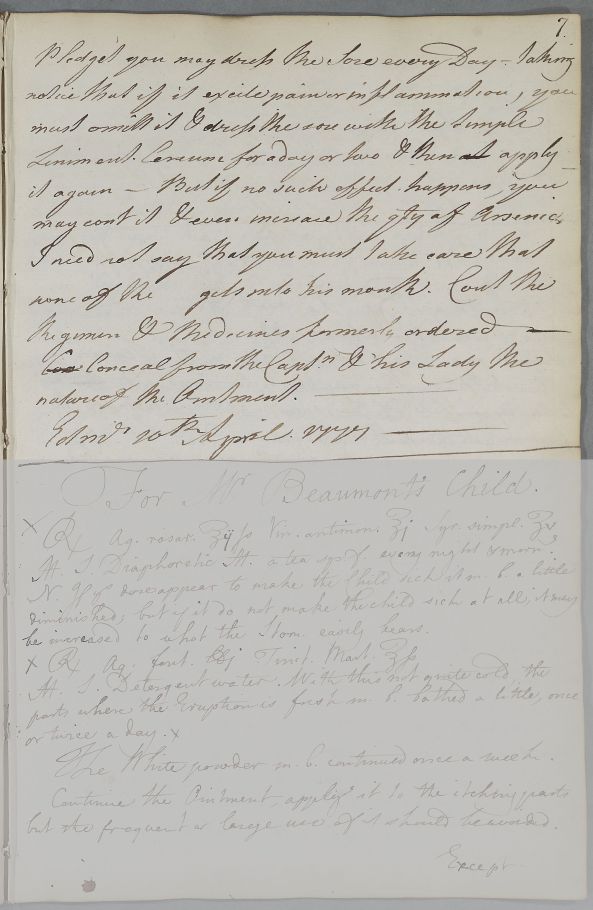 7.
Pledget you may dress the Sore every Day – taking
notice that if it excite pain or inflammation, you
must omitt it & dress the sore with the Simple
Liniment. Cereum for a day or two & then at apply
it again – But if no such effect happens, you
may cont it & even increace the qty of Arsenic.
I need not say that you must take care that
none of the gets into his mouth. Cont the
Regimen & Medicines formerly ordered —
Conceal from the Captn & his Lady the
nature of the Ointment. —
Edinr 10th April. 1777 —
For Mr Beaumont's Child.
x ℞ Aq. rosar. ℥ij ſs Vin. antimon. ℥j Syr. simpl. ℥x
M. S. Diaphoretic M. a tea sp. f. every night & morn.
N. If ys dose appear to make the Child sick it m. b. a little
diminished; but if it do not make the child sick at all, it may
be increased to what the Stom. easily bears.
x ℞ Aq. font. Tinct. Mart. ℥ſs
M. S. Detergent water. With this not quite cold, the
parts where the Eruption is fresh m. b. bathed a little, once
or twice a day. x
The White powder m. b. continued once a week.
Continue the Ointment, applyg it to the itching parts
but the frequent or large use of it should be avoided.
Except